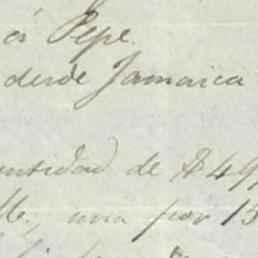 á Pepe.
desde Jamaica
antidad de $ 49
una por 15